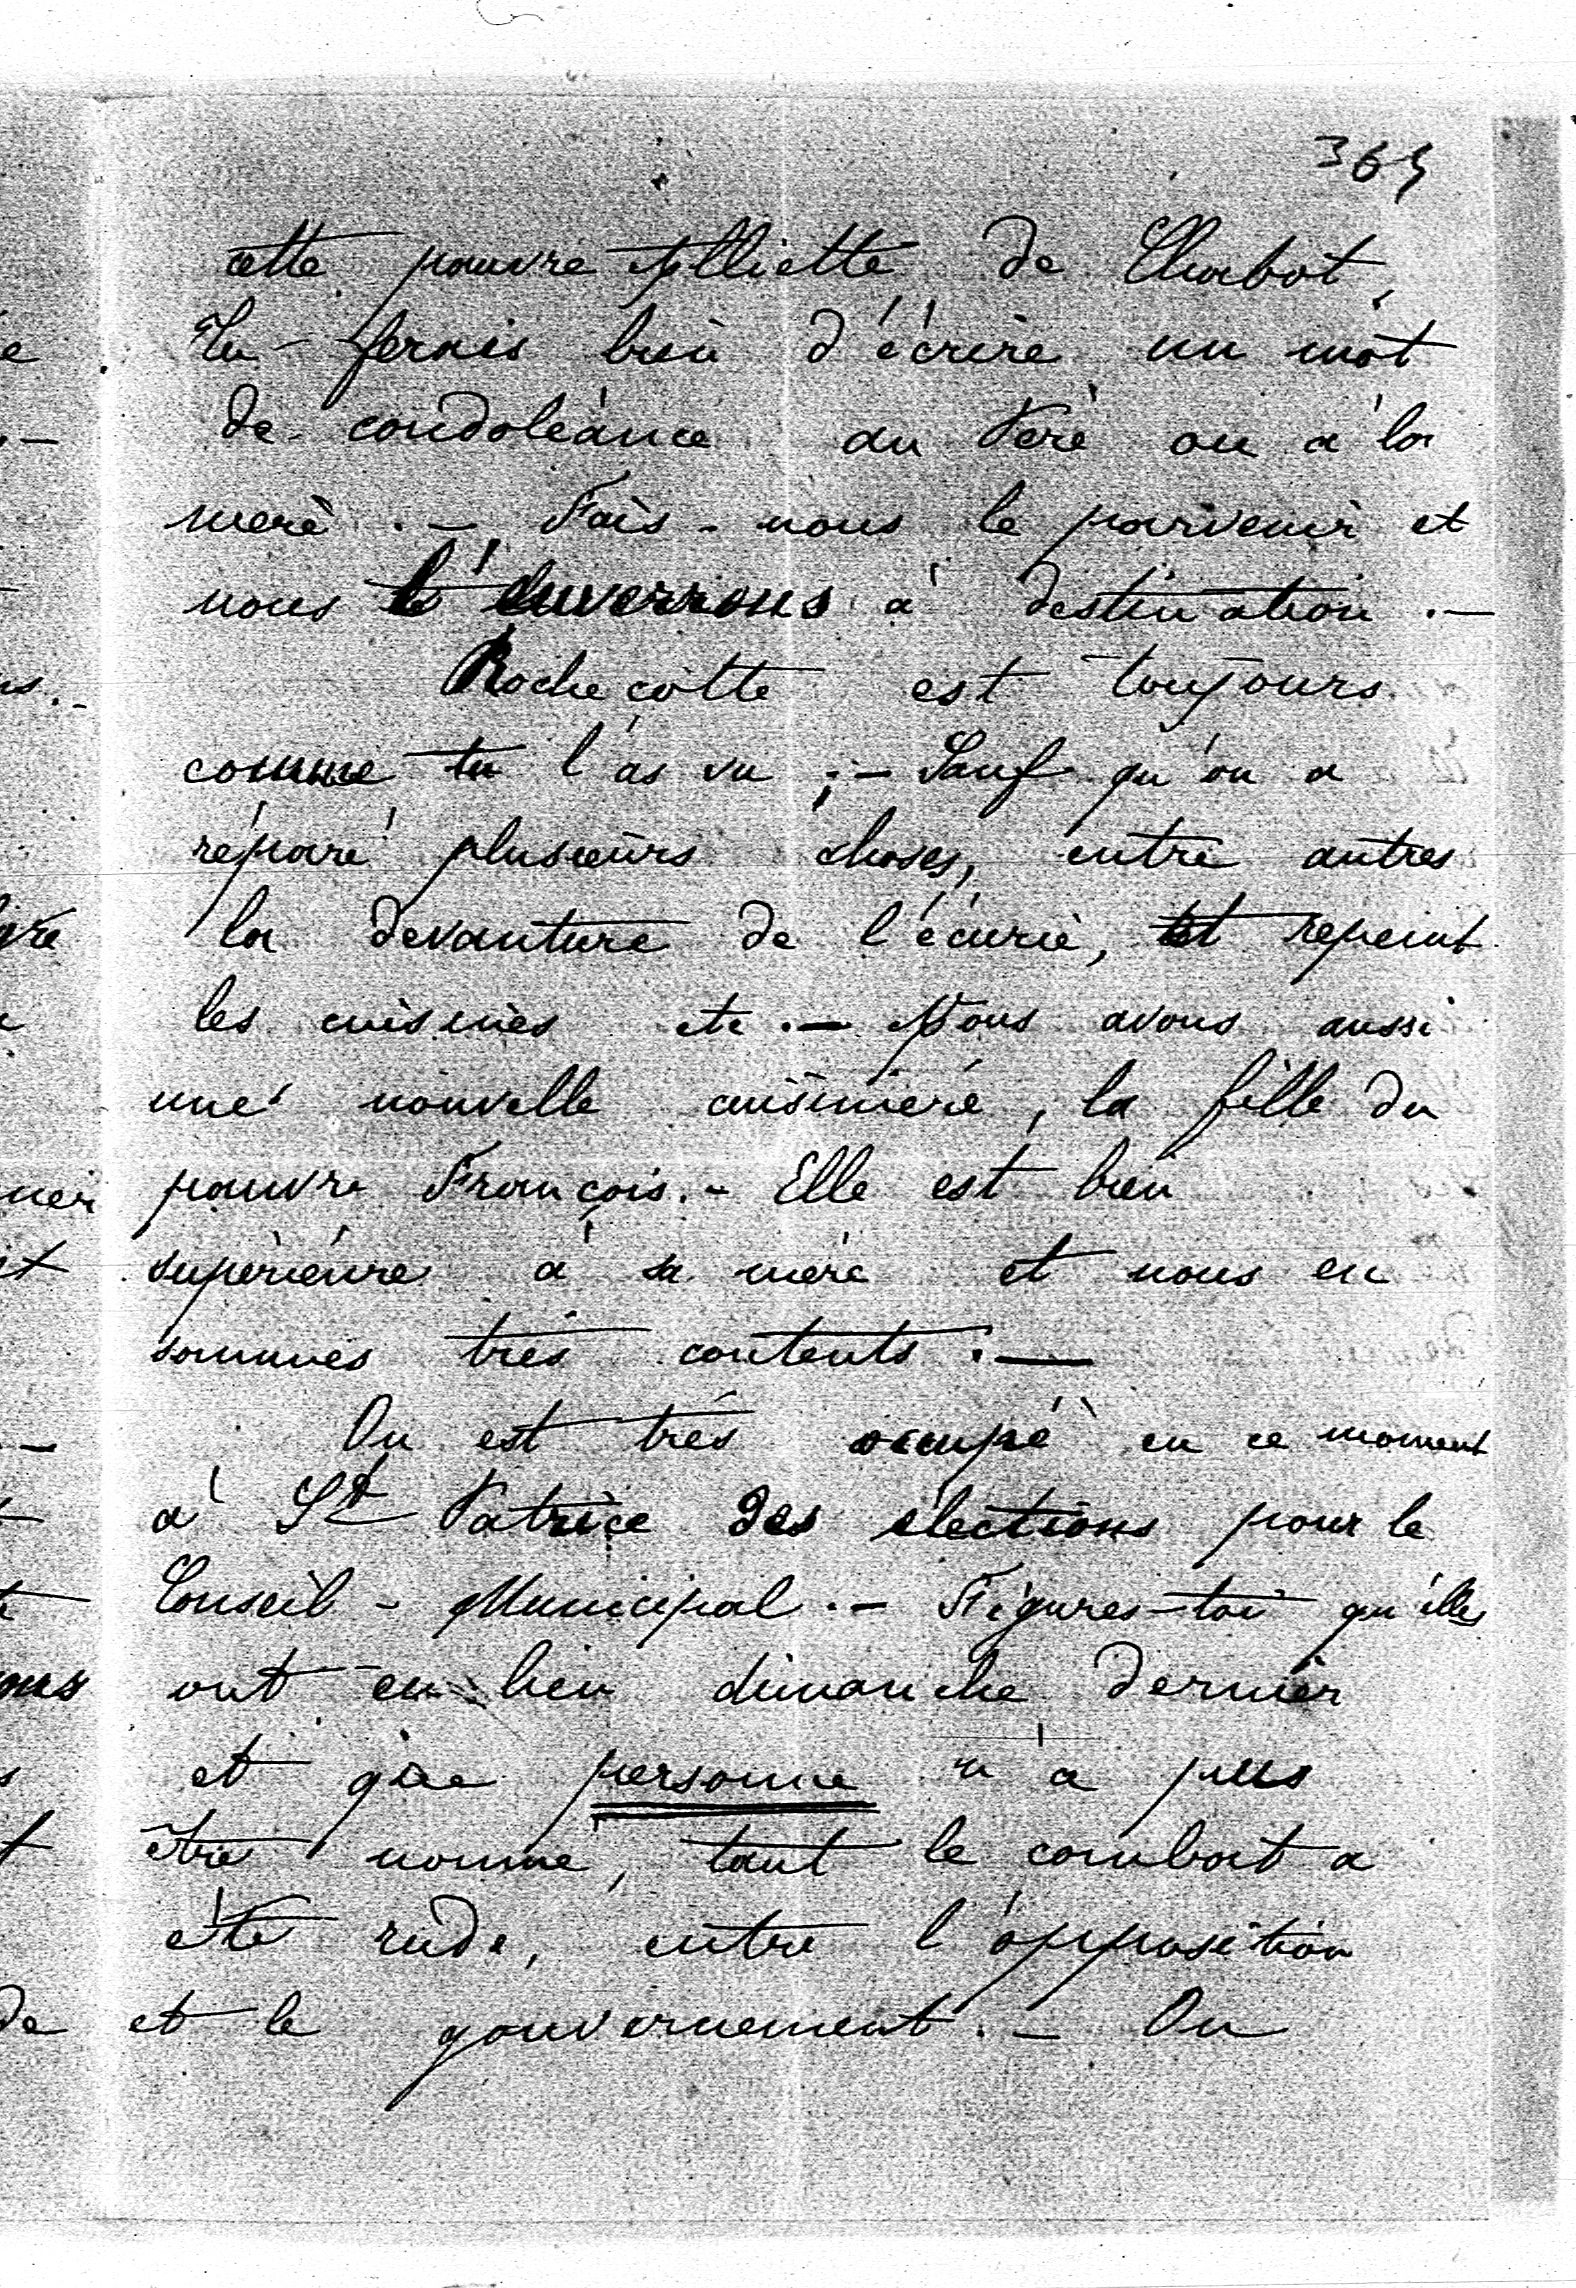 365
cette pauvre Alliette de Chabot,
Tu ferais bien d'écrire un mot
de condoléance au Père ou à la
mère. — Fais-nous le parvenir et
nous l'enverrons à destination. —
Rochecotte est toujours
comme tu l'as vu ; — Sauf qu'on a
réparé plusieurs choses, entre autres
la devanture de l'écurie, et repeint
les cuisines etc. — Nous avons aussi
une nouvelle cuisinière, la fille du
pauvre François. - Elle est bien
supérieure à sa mère et nous en
sommes très contents. —
On est très occupé en ce moment
à St Patrice des élections pour le
Conseil-Municipal. — Figures-toi qu'elles
ont eu lieu dimanche dernier
et que personne n'a pus
être nommé, tant le combat a
été rude, entre l'opposition
et le gouvernement. — On